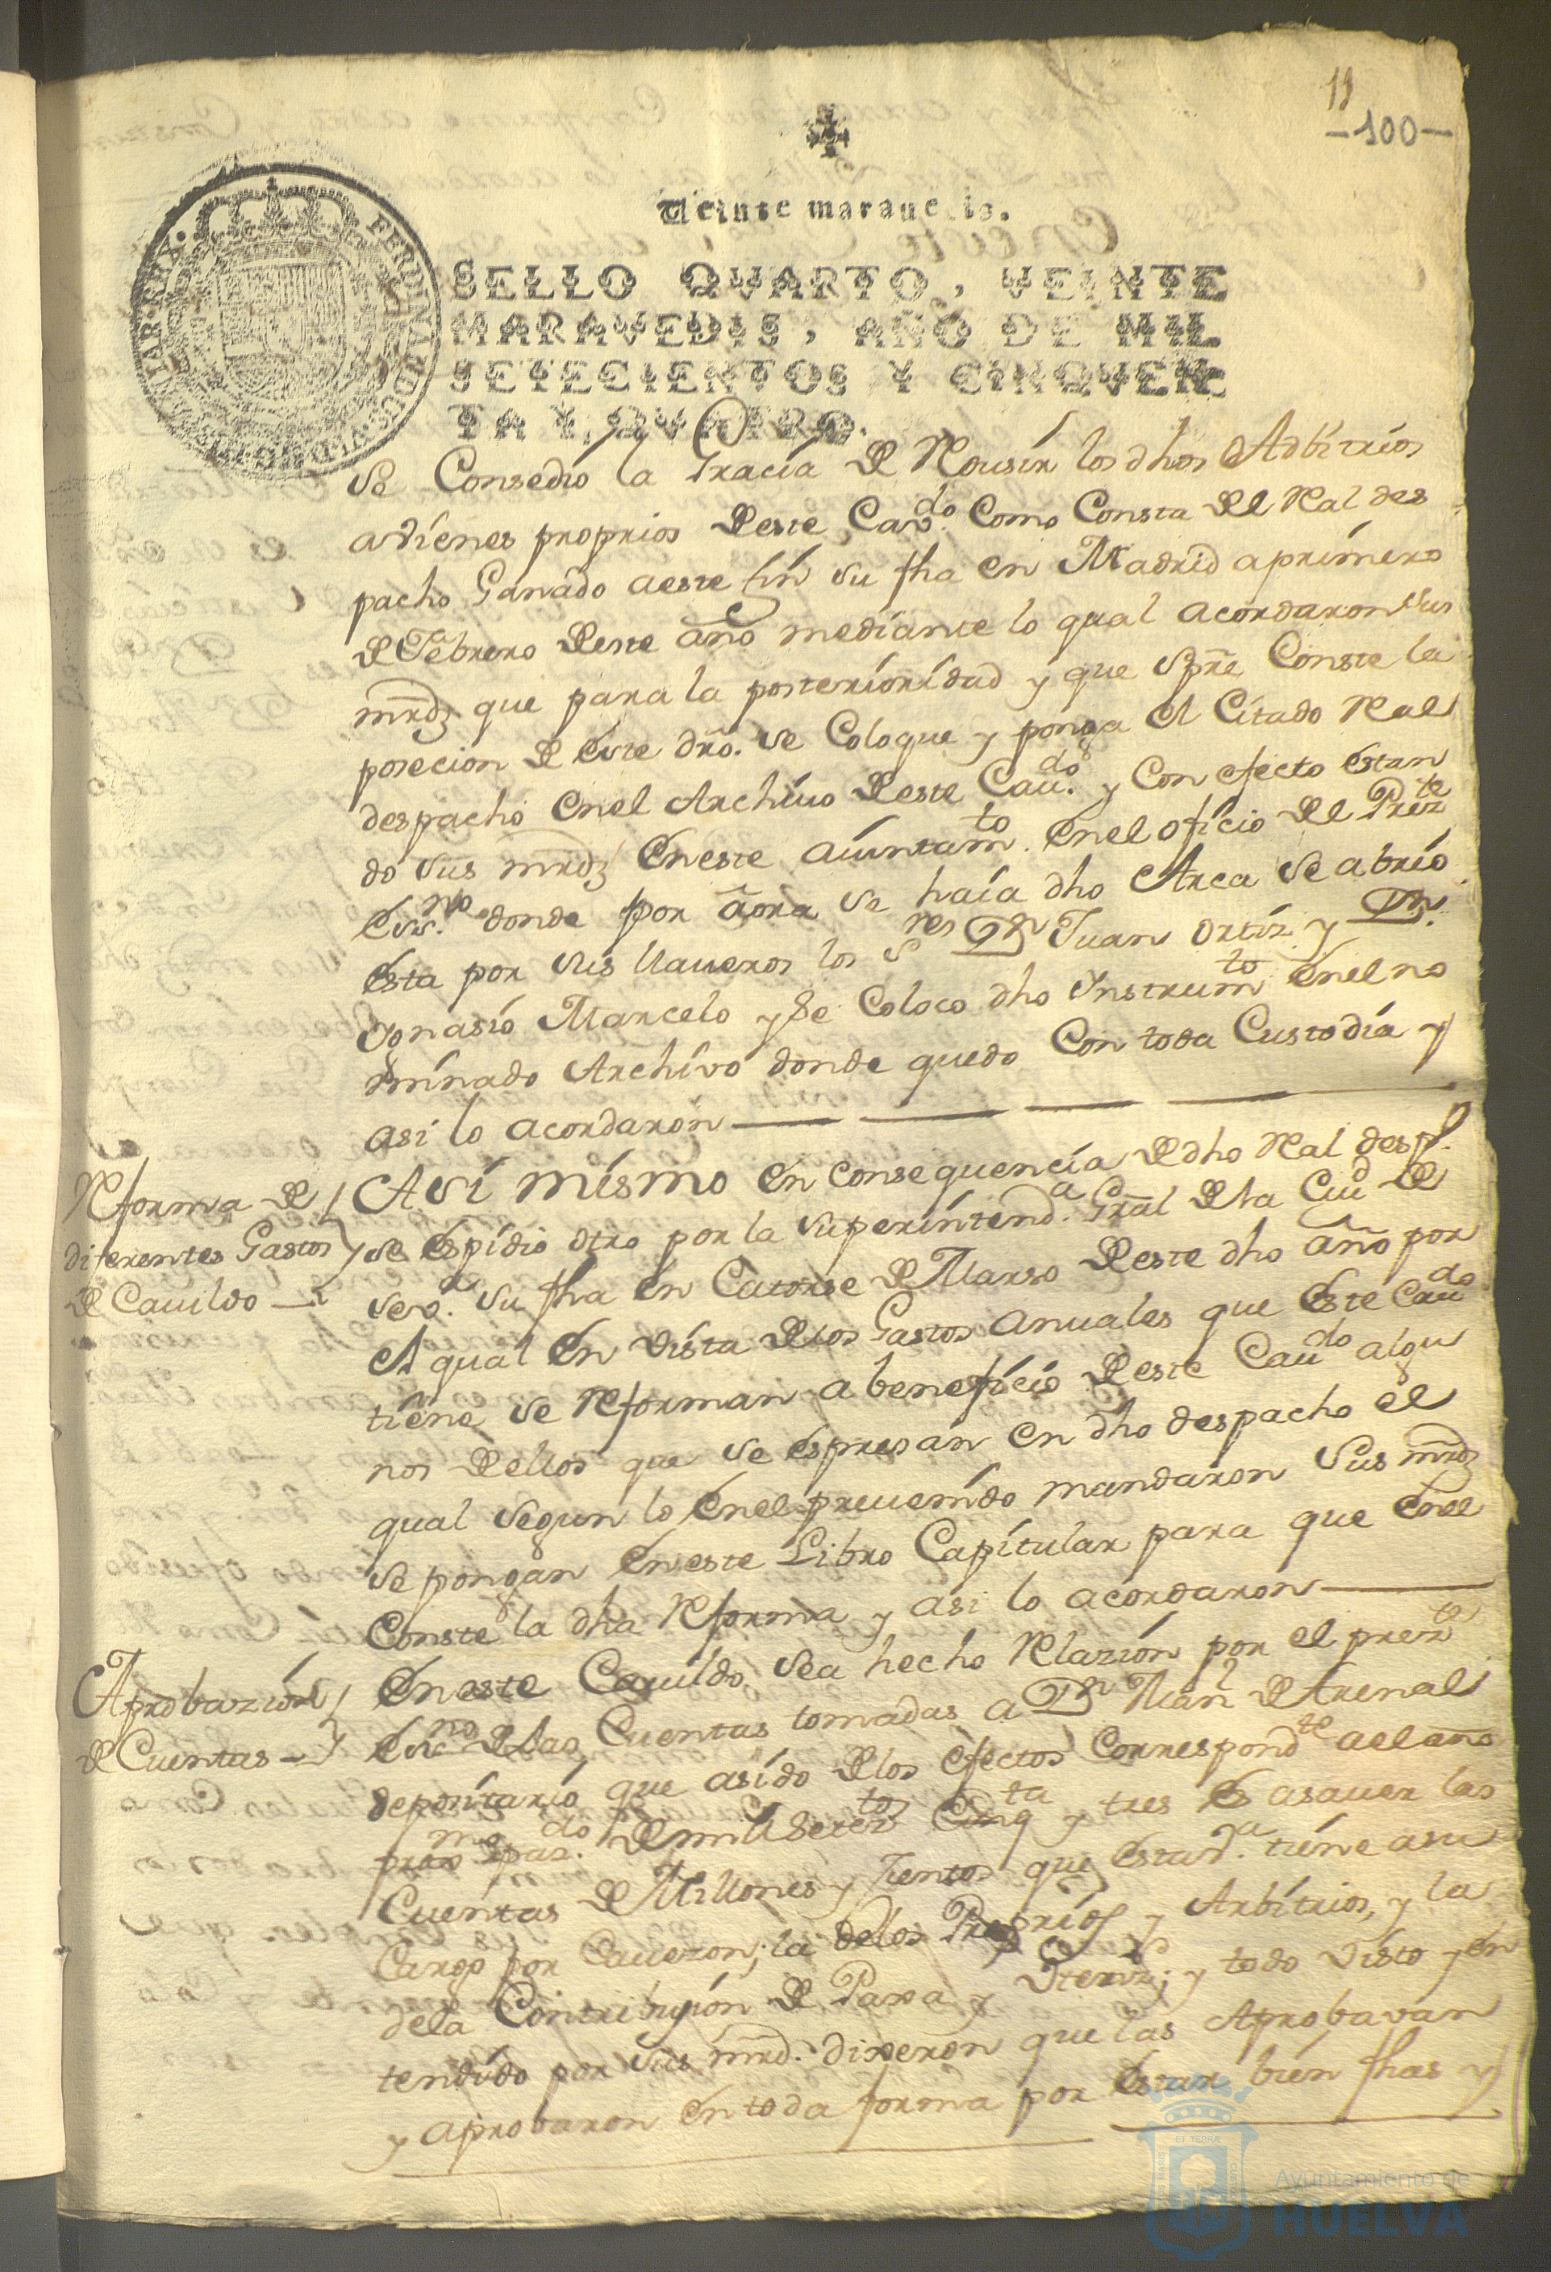 13
-100-
Veinte maravedis.
SELLO QVARTO, VEINTE
MARAVEDIS, AÑO DE MIL
SETECIENTOS Y CINQVEN
TA Y QVATRO.
FERDINANDUS
se Consedio la Gracia de los dhos Advitrios
avienes proprios deste Cavdo. Como Consta del Real des
pacho Ganado aeste fin su fha en Madrid aprimero
de Febrero deste año mediante lo qual acordaron sus
mrdz que para la posterioridad y que spre Conste la
posecion de este dro. se Coloque y ponga el Citado Real
despacho enel Archivo deste Caudo. y Con efecto estan
do sus mrdz eneste aiuntamto. enel oficio del prezte
essno. donde por aora se haia dho Arca se abrio
esta por sus llaueros los Sres Dn Juan Ortiz y Dn.
Ygnasio Marcelo y se Coloco dho Ynstrumto enel no
minado Archivo donde quedo Con toda Custodia y
asi lo acordaron
Reforma de
diferentes Gastos
de Cauildo
Asi mismo en consequencia de dho Real desp.
se espidio otro por la superintenda. Gral de la Ciud de
Seva. su fha en Catorse de Marso deste dho año por
el qual en vista de los Gastos anuales que este Caudo
tiene se Reforman a beneficio deste Caudo algu
nos dellos que se espresan en dho despacho el
qual segun lo enel preuenido mandaron sus mrdz
se pongan eneste Libro Capitular para que enel
Conste la dha Reforma y asi lo acordaron
Aprobazion
de Cuentas
eneste Cauildo sea hecho Relazion por el prezte
essno de las Cuentas tomadas a Dn de Arenal
depositario que asido de los efectos correspondte ael año
prmo pasdo. de mill seteztos Cinqta y tres es asauer las
Cuentas de Millones y Zientos que esta Va. tiene asu
Cargo por Caueson; la delos Proprios y Arbitrios, y la
dela Contribuzion de Paxa y Vtensz; y todo visto y en
tendido por sus mrd. dixeron que las Aprobavan
y aprobaron en toda forma por estar bien fhas y
Ayuntamiento de
HUELVA